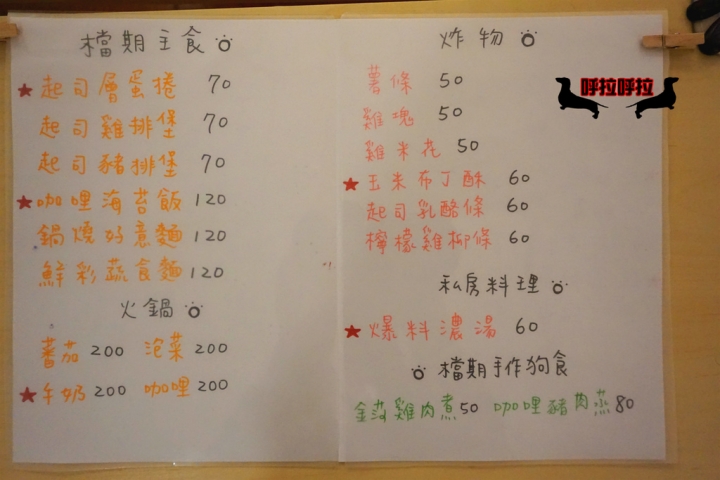 檔期主食
起司層蛋捲 70
起司雞排堡 70
起司豬排堡 70
咖哩海苔飯 120
鍋燒好意麵 120
鮮彩蔬食麵 120
火鍋
蕃茄 200 泡菜 200
牛奶 200 咖哩 200
炸物
薯條 50
雞塊 50
雞米花 50
玉米布丁酥 60
起司乳酪條 60
檸檬雞柳條 60
私房料理
爆料濃湯 60
檔期手作狗食
金莎雞肉煮 50 咖哩豬肉蒸 80
呼拉呼拉